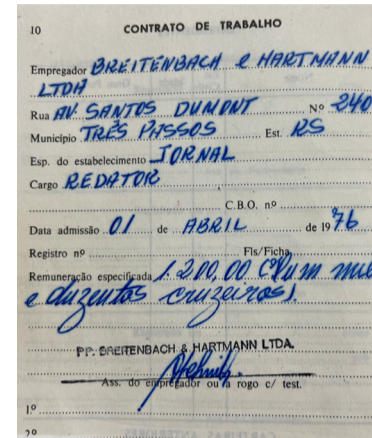 10 CONTRATO DE TRABALHO
Empregador BREITENBACH e HARTMANN
LTDA
Rua AV. SANTOS DUMONT Nº 240
Município TRÊS PASSOS Est. RS
Esp. do estabelecimento JORNAL
Cargo REDATOR
C.B.O. nº
Data admissão 01 de ABRIL de 1976
Registro nº Fls/Ficha
Remuneração especificada 1.200,00 (Hum mil
e duzentos cruzeiros).
PP. BREITENBACH & HARTMANN LTDA.
Ass. do empregador ou a rogo c/ test.
1º
2º